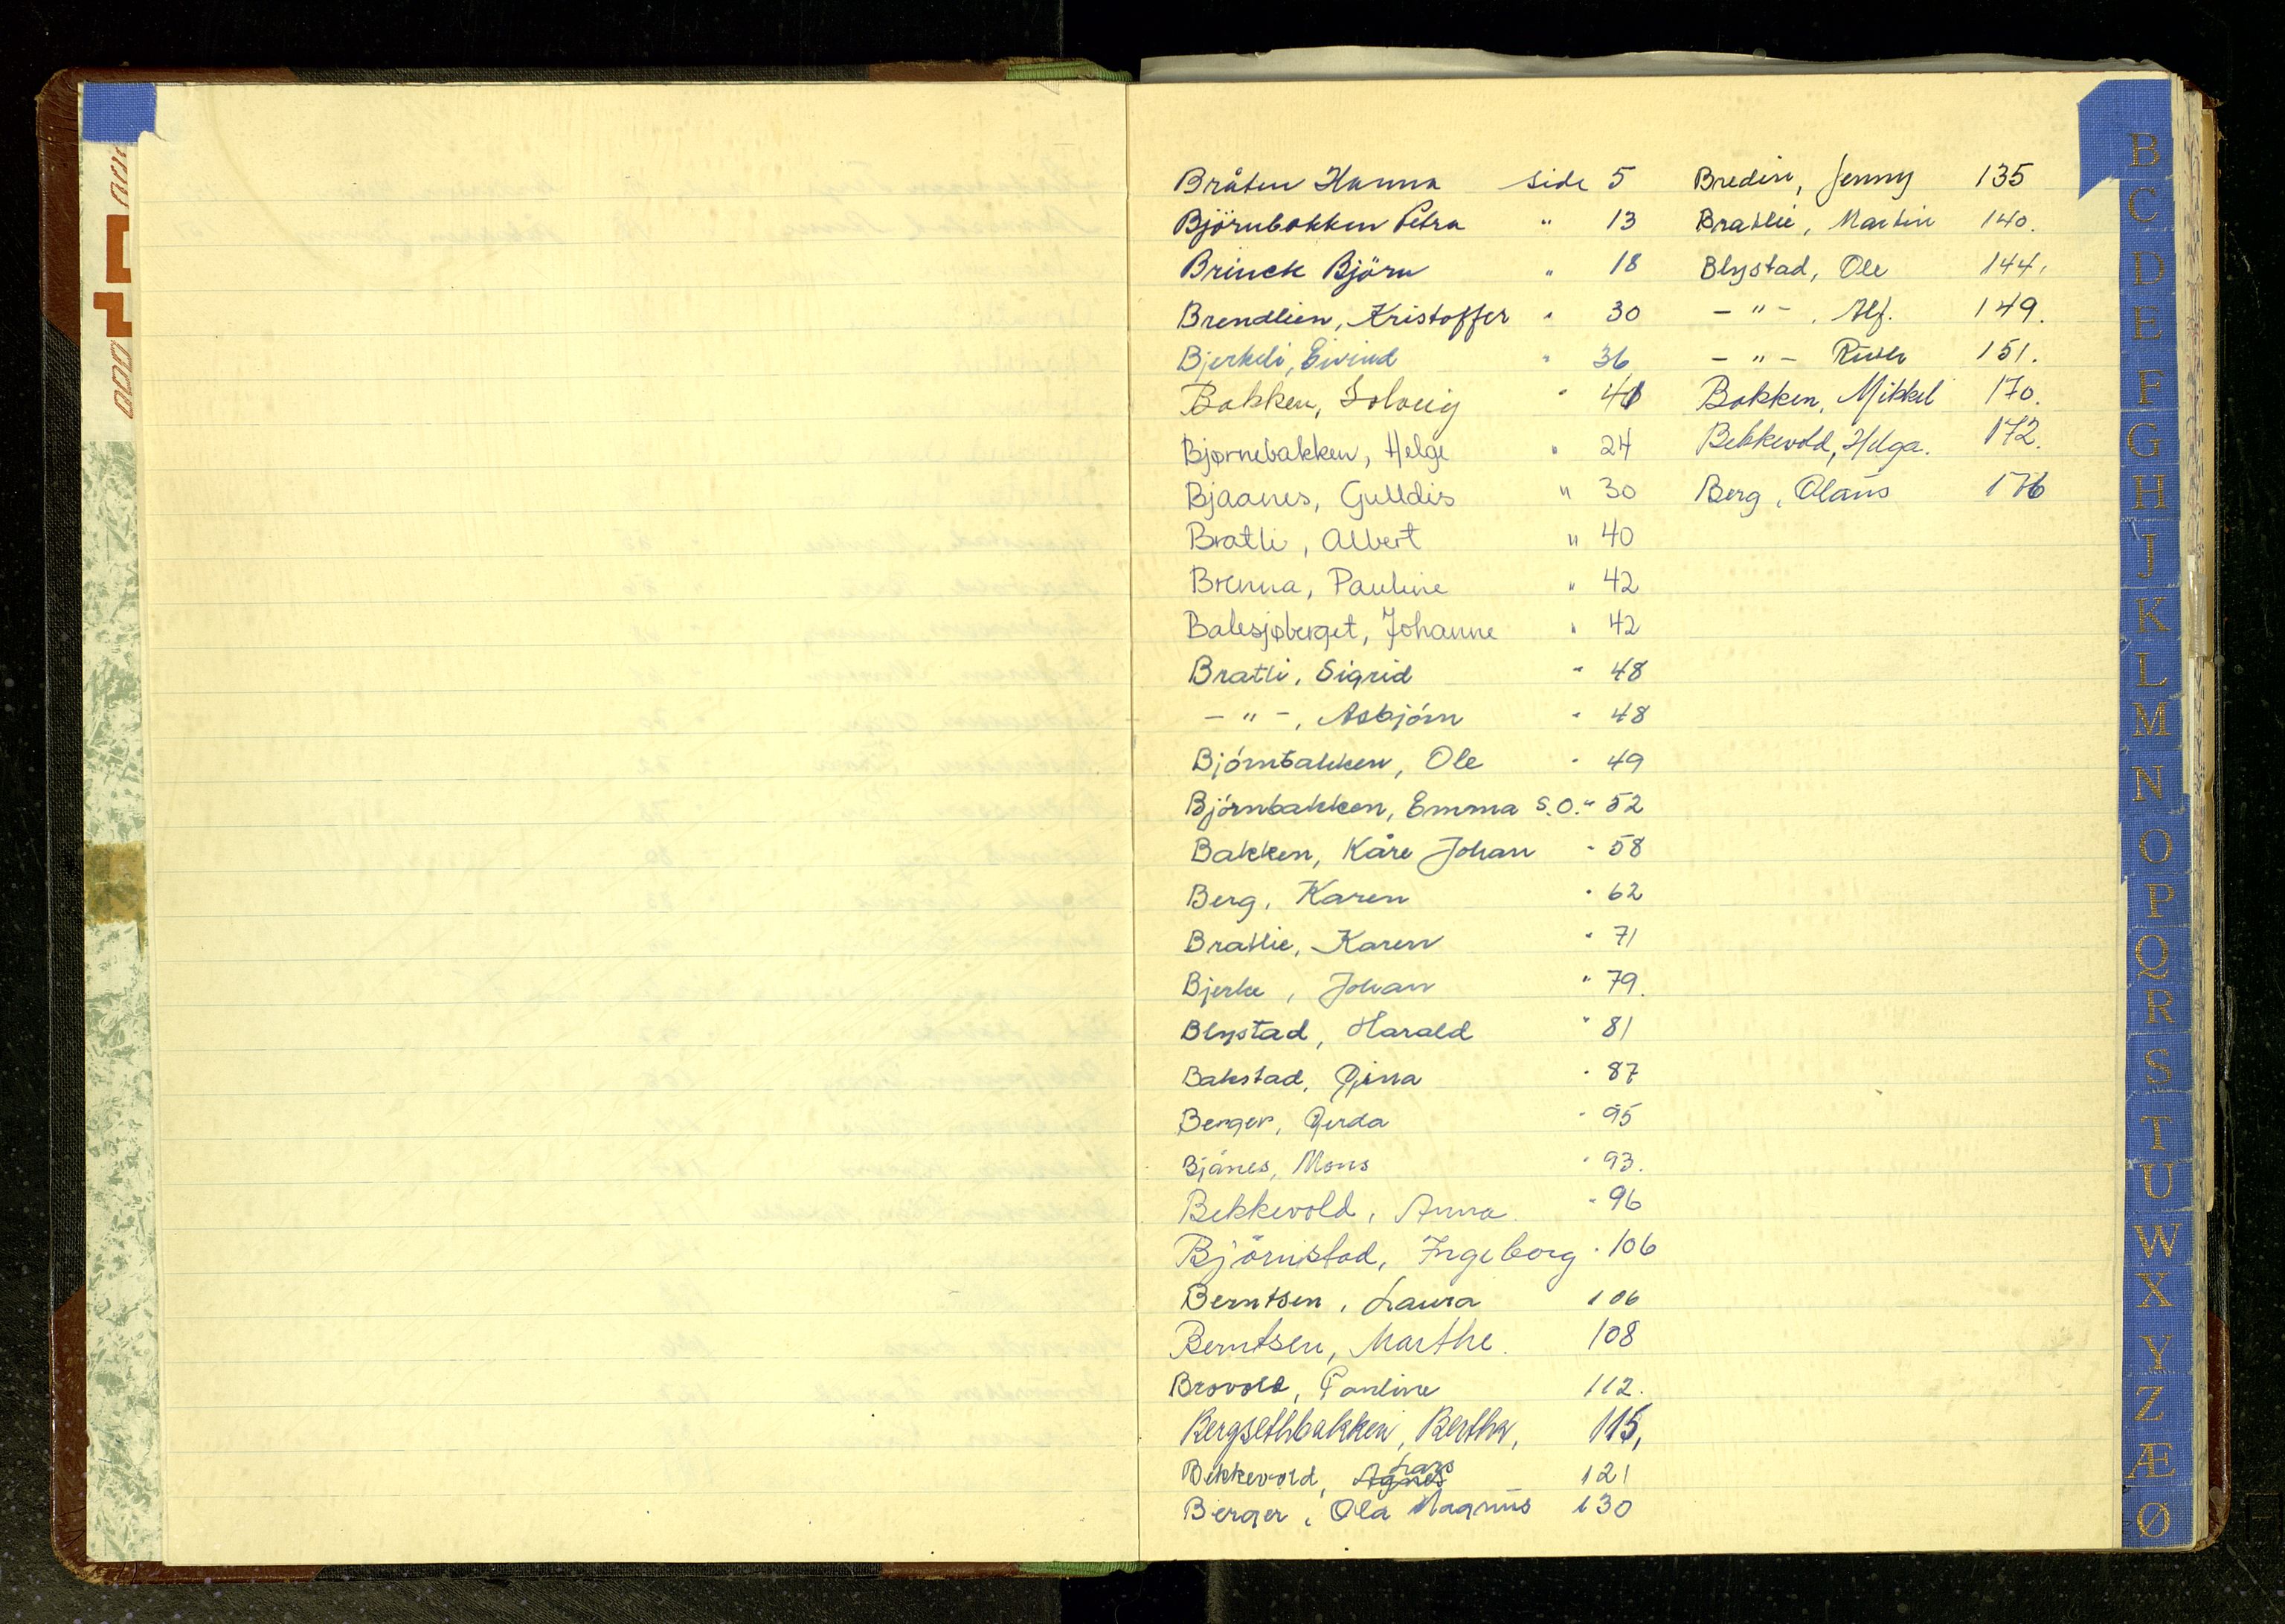 Bråten Hanna side 5
Björnbakken Petra " 13
Brinck Björn " 18
Brendlien, Kristoffer " 30
Bjerkeli, Eivind " 36
Bakken, Solveig "
Bjørnebakken, Helge " 24
Bjaanes, Gulldis " 30
Bratli, Albert " 40
Brenna, Pauline " 42
Balesjøberget, Johanne " 42
Bratli, Sigrid " 48
- " -, Asbjörn " 48
Björnbakken, Ole " 49
Björnbakken, Emma S.O. " 52
Bakken, Kåre Johan " 58
Berg, Karen " 62
Bratlie, Karen " 71
Bjerke, Johan " 79.
Blystad, Harald " 81
Bakstad, Gina " 87
Berger, Gerda " 95
Bjånes, Mons " 93.
Bekkevold, Anna " 96
Björnstad, Ingeborg " 106
Berntsen, Laura 106
Berntsen, Marthe. 108
Brovold, Pauline 112.
Bergsethbakken, Bertha, 115,
Bekkevold, Agnes Lars 121
Berger, Ola Magnus 130
Bredin, Jenny 135
Bratlie, Martin 140.
Blystad, Ole 144.
- " -, Alf. 149.
- " - Ruth 151.
Bakken, Mikkel 170.
Bekkevold, Helga. 172.
Berg, Olaus 176
B
C
D
E
F
G
H
J
K
L
M
N
O
P
Q
R
S
T
U
W
X
Y
Z
Æ
Ø